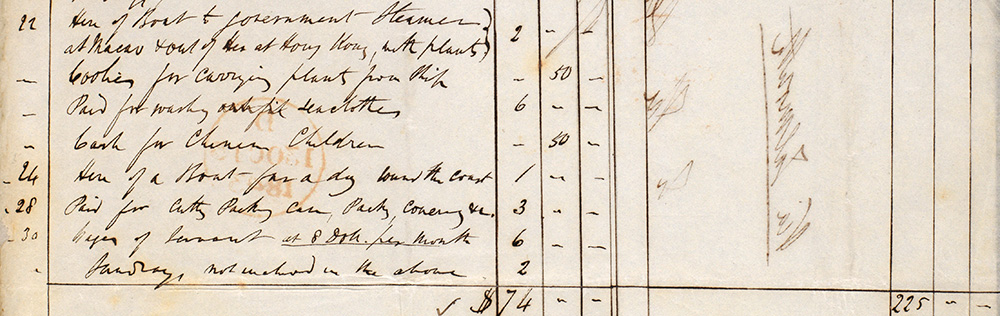 22 Hire of Boat to government Steamer
at Macao & out of Her at Hong Kong, with plants 2 " –
– Coolies for carrying plants from Ship – 50 –
– Paid for washing sea clothes 6 – –
" Cash for Chinese Children – 50 –
– 24 Hire of a Boat for a day round the Coast 1 – –
– 28 Paid for Cutty Packing Case, Packg, Covering &c. 3 " –
– 30 Wages of Servant at 8 Doll. per Month 6 – –
" Sundrays, not inclused in the above 2
$ 74 – – 225 – –